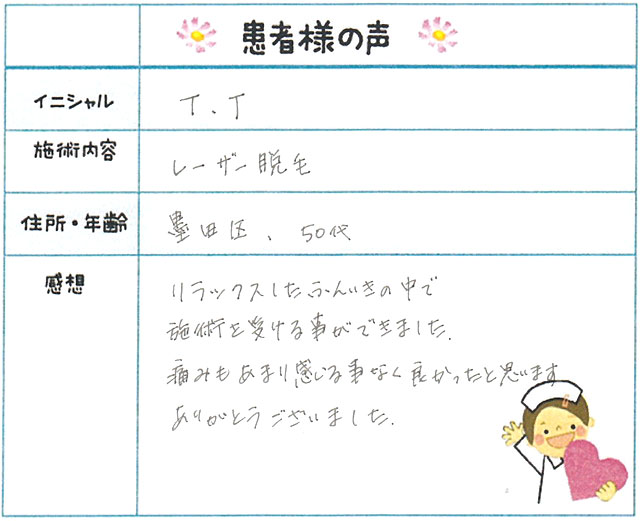 患者様の声
イニシャル T.T
施術内容 レーザー脱毛
住所・年齢 墨田区、50代
感想
リラックスしたふんいきの中で
施術を受ける事ができました.
痛みもあまり感じる事なく良かったと思います
ありがとうございました.